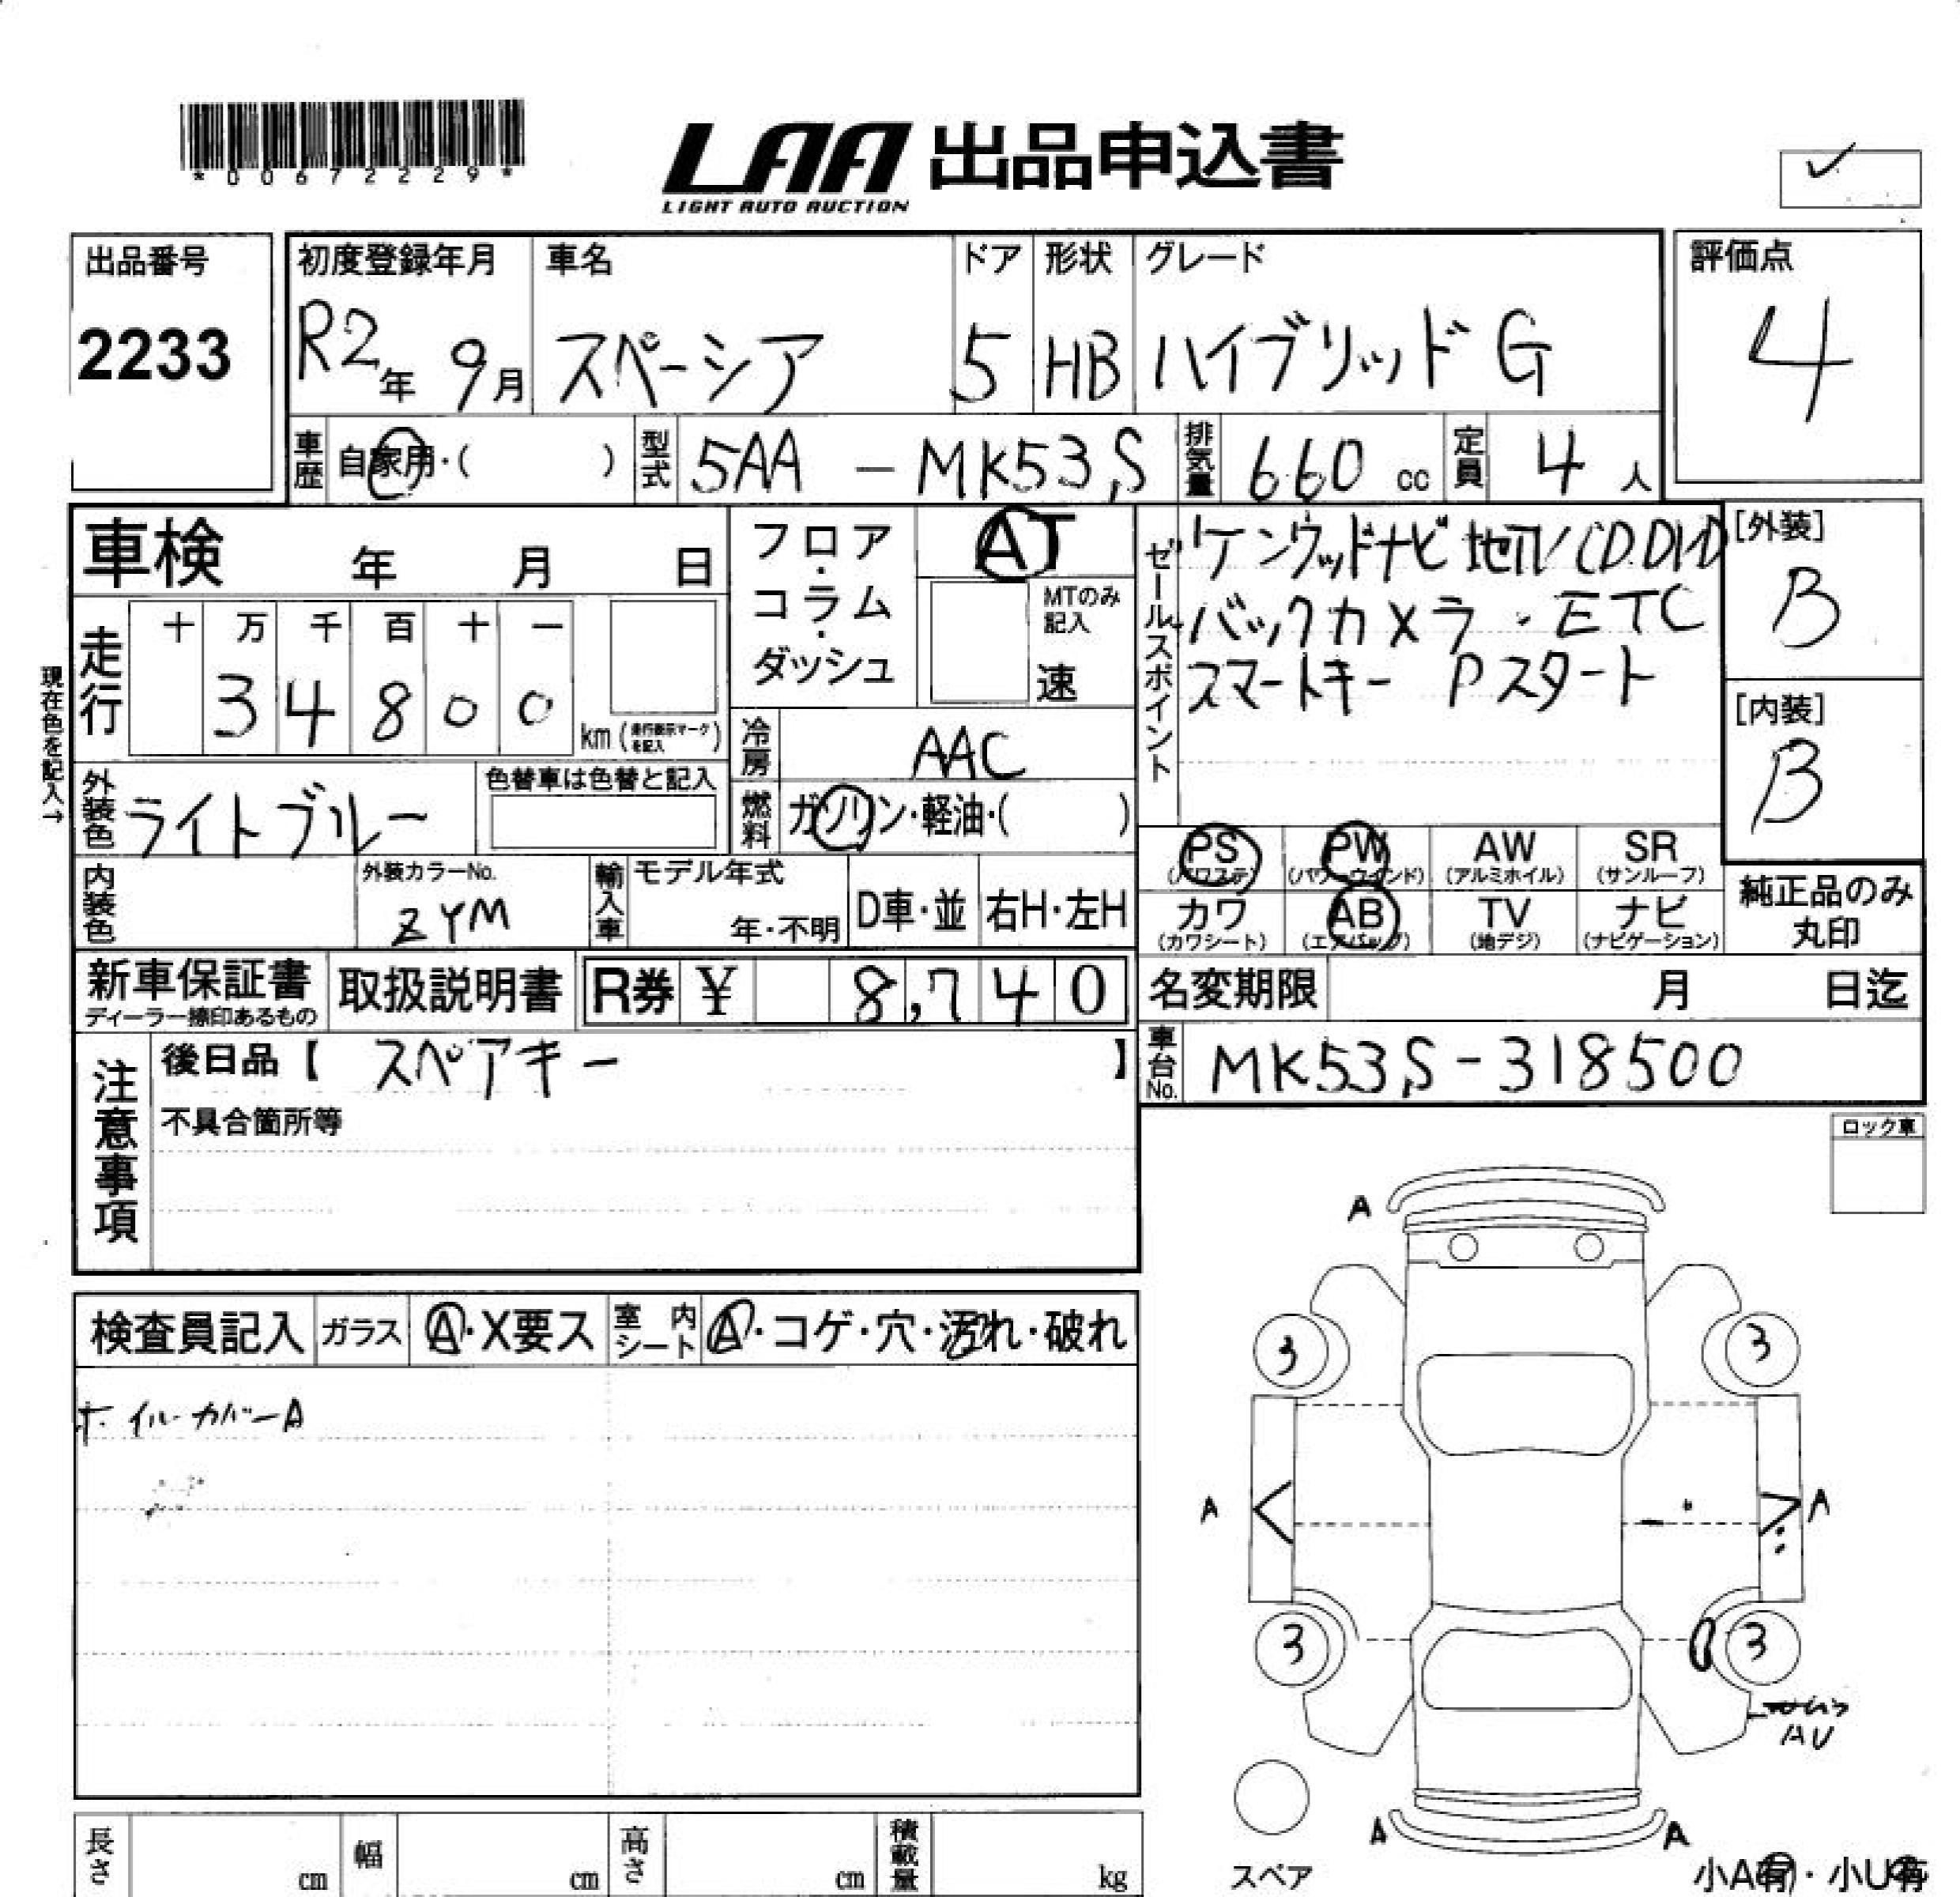 *00672229*
LAA 出品申込書
LIGHT AUTO AUCTION
出品番号
2233
初度登録年月
R2年 9月
車名
スペーシア
ドア
5
形状
HB
グレード
ハイブリッド G
評価点
4
車歴 自家用・( )
型式 5AA - MK53S
排気量 660 cc
定員 4 人
車検 年 月 日
フロア・コラム・ダッシュ
AT
MTのみ記入
速
セールスポイント
ケンウッドナビ 地デジ/CD.DVD
バックカメラ・ETC
スマートキー Pスタート
[外装]
B
[内装]
B
現在色を記入→
走行
十 万 千 百 十 一
3 4 8 0 0
km (走行表示マークを記入)
冷房 AAC
外装色 ライトブルー
色替車は色替と記入
燃料 ガソリン・軽油・( )
PS (パワステ)
PW (パワーウインド)
AW (アルミホイル)
SR (サンルーフ)
カワ (カワシート)
AB (エアバッグ)
TV (地デジ)
ナビ (ナビゲーション)
純正品のみ
丸印
内装色
外装カラーNo.
ZYM
輸入車
モデル年式
年・不明
D車・並
右H・左H
新車保証書
ディーラー捺印あるもの
取扱説明書
R券 ¥ 8,740
名変期限 月 日迄
車台No. MK53S-318500
注意事項
後日品【 スペアキー 】
不具合箇所等
ロック車
検査員記入
ガラス A・X要ス
室内シート A・コゲ・穴・汚れ・破れ
ホイルカバーA
A
3 3
A A
3 3
AU
A A
スペア
小A有・小U有
長さ cm
幅 cm
高さ cm
積載量 kg